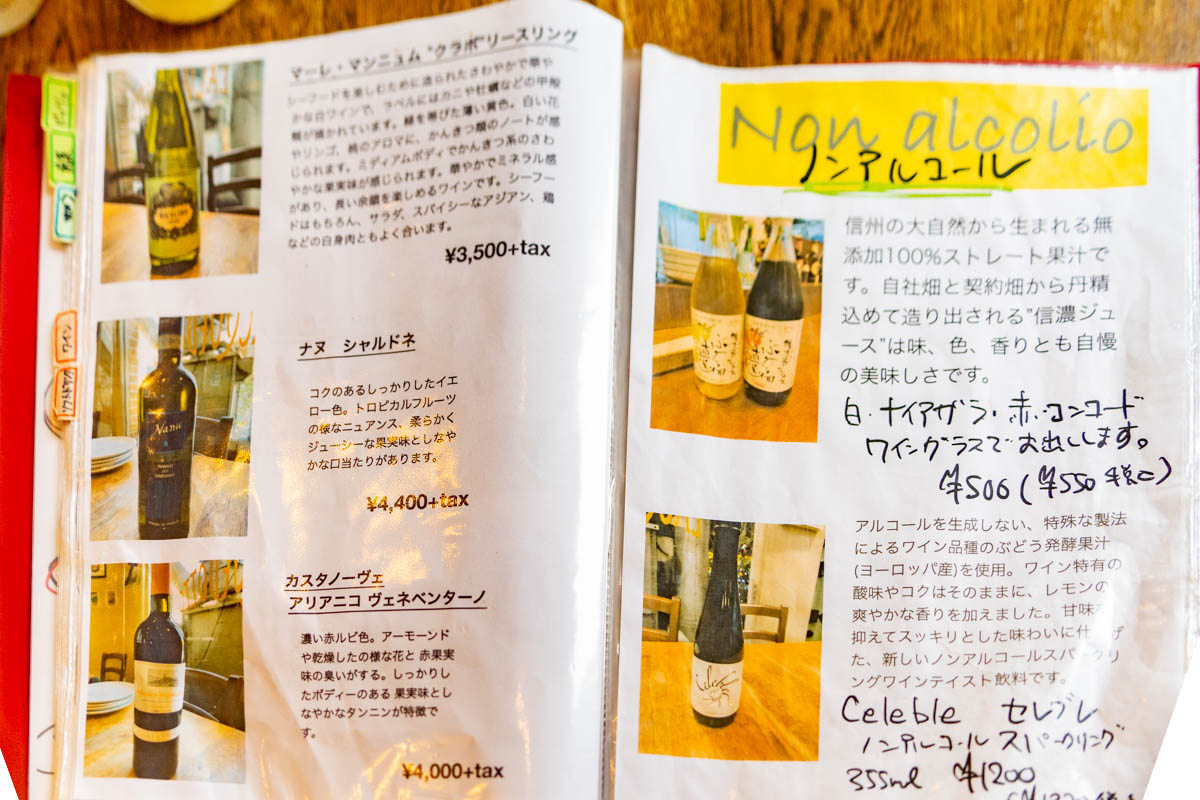 マーレ・マンニュム "クラボ"リースリング
シーフードを楽しむために造られたさわやかで華や
かな白ワインで、ラベルにはカニや牡蠣などの甲殻
類が描かれています。緑を帯びた薄い黄色。白い花
やリンゴ、桃のアロマに、かんきつ類のノートが感
じられます。ミディアムボディでかんきつ系のさわ
やかな果実味が感じられます。華やかでミネラル感
があり、長い余韻を楽しめるワインです。シーフー
ドはもちろん、サラダ、スパイシーなアジアン、鶏
などの白身肉ともよく合います。
¥3,500+tax
ナヌ シャルドネ
コクのあるしっかりしたイエ
ロー色。トロピカルフルーツ
の様なニュアンス、柔らかく
ジューシーな果実味としなや
かな口当たりがあります。
¥4,400+tax
カスタノーヴェ
アリアニコ ヴェネベンターノ
濃い赤ルビ色。アーモーンド
や乾燥したの様な花と 赤果実
味の臭いがする。しっかりし
たボディーのある 果実味とし
なやかなタンニンが特徴で
す。
¥4,000+tax
ワイン
Nanú
Non alcolio
ノンアルコール
信州の大自然から生まれる無
添加100%ストレート果汁で
す。自社畑と契約畑から丹精
込めて造り出される"信濃ジュ
ース"は味、色、香りとも自慢
の美味しさです。
白・ナイアガラ・赤・コンコード
ワイングラスでお出しします。
¥506(¥550税込)
アルコールを生成しない、特殊な製法
によるワイン品種のぶどう発酵果汁
(ヨーロッパ産)を使用。ワイン特有の
酸味やコクはそのままに、レモンの
爽やかな香りを加えました。甘味を
抑えてスッキリとした味わいに仕上げ
た、新しいノンアルコールスパークリ
ングワインテイスト飲料です。
Celeble セレブレ
ノンアルコール スパークリング
355ml ¥1200